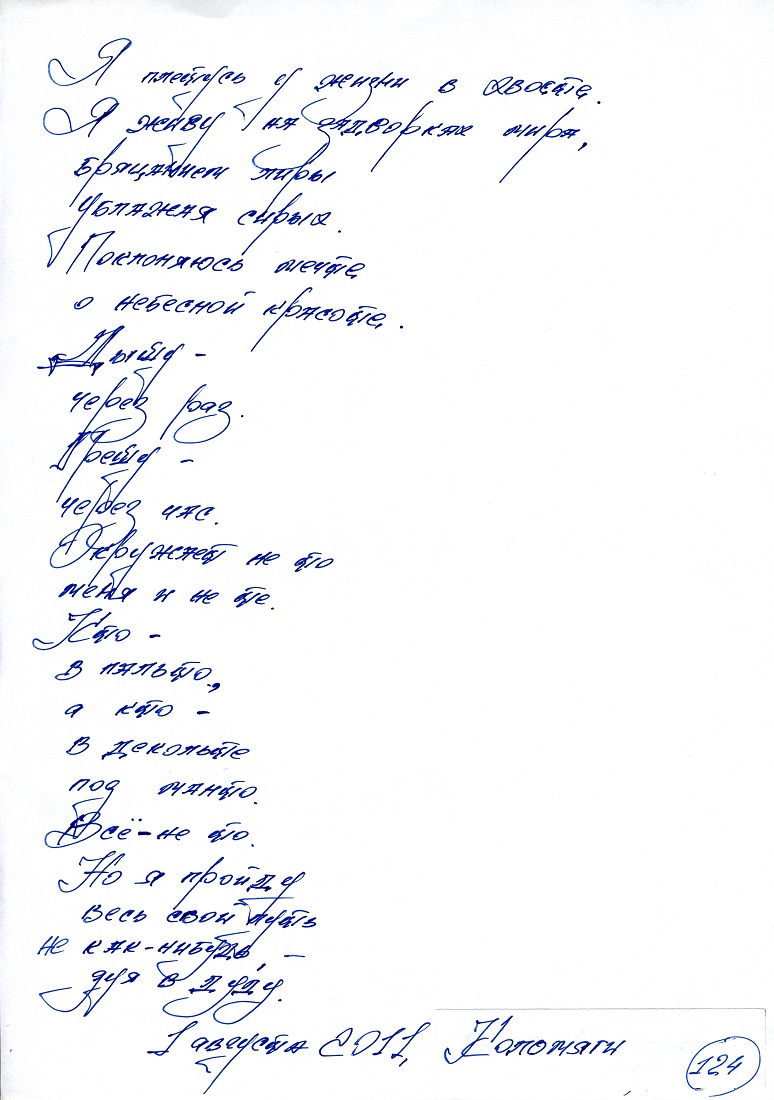 Я плетусь у жизни в хвосте.
Я живу на задворках мира,
бряцанием лиры
ублажая сирых.
Поклоняюсь мечте
о небесной красоте.
Дышу -
через раз.
Грешу -
через час.
Окружает не то
меня и не те.
Кто -
в пальто,
а кто -
в декольте
под манто.
Всё - не то.
Но я пройду
весь свой путь
не как-нибудь, -
дуя в дуду.
1 августа 2011, Коломяги
124